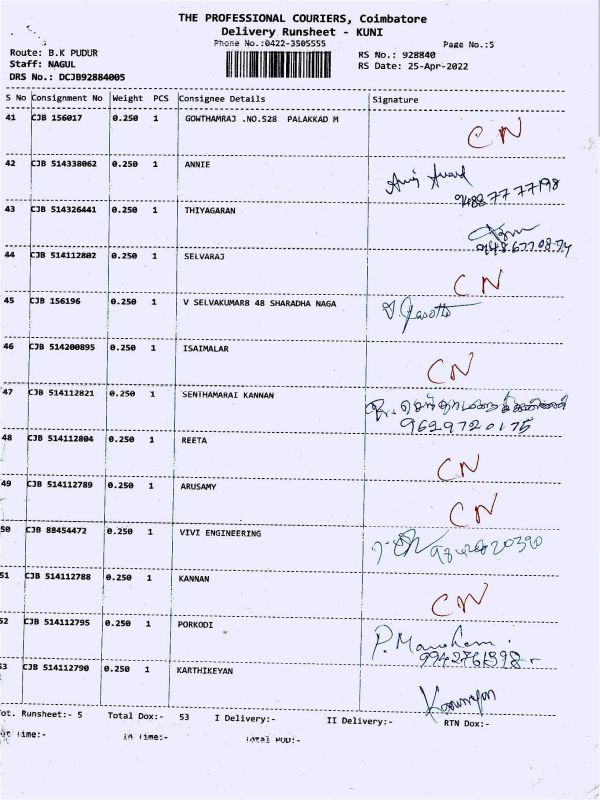 THE PROFESSIONAL COURIERS, Coimbatore
Delivery Runsheet - KUNI
Phone No.:0422-3505555
Page No.:5
Route: B.K PUDUR
RS No.: 928840
Staff: NAGUL
RS Date: 25-Apr-2022
DRS No.: DCJB92884005
S No Consignment No Weight PCS Consignee Details Signature
41 CJB 156017 0.250 1 GOWTHAMRAJ .NO.528 PALAKKAD M CN
42 CJB 514338062 0.250 1 ANNIE
9488777798
43 CJB 514326441 0.250 1 THIYAGARAN
44 CJB 514112802 0.250 1 SELVARAJ CN
45 CJB 156196 0.250 1 V SELVAKUMAR8 48 SHARADHA NAGA
46 CJB 514200895 0.250 1 ISAIMALAR CN
47 CJB 514112821 0.250 1 SENTHAMARAI KANNAN
9629720175
48 CJB 514112804 0.250 1 REETA CN
49 CJB 514112789 0.250 1 ARUSAMY CN
50 CJB 88454472 0.250 1 VIVI ENGINEERING
51 CJB 514112788 0.250 1 KANNAN CN
52 CJB 514112795 0.250 1 PORKODI
53 CJB 514112790 0.250 1 KARTHIKEYAN
Tot. Runsheet:- 5 Total Dox:- 53 I Delivery:- II Delivery:- RTN Dox:-
Out Time:- In Time:- Total POD:-